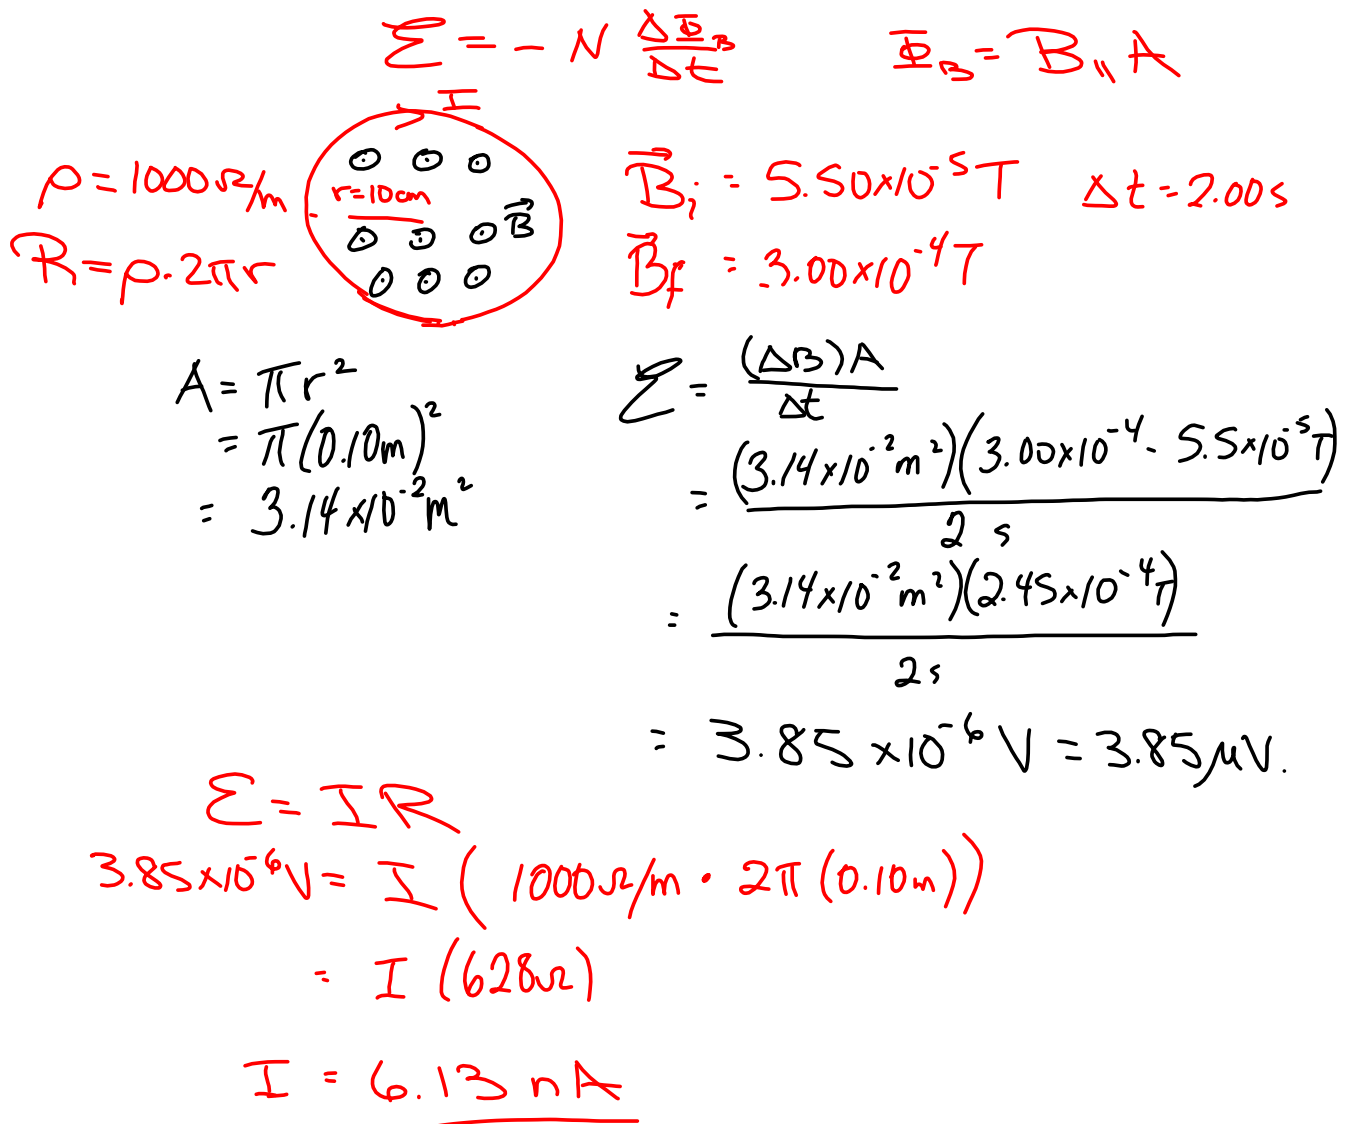 ℰ = - N ΔΦ_B/Δt    Φ_B = B_∥ A
I
ρ = 1000Ω/m    r=10cm    B⃗_i = 5.50×10⁻⁵T    Δt = 2.00s
R = ρ·2πr    B⃗    B⃗_f = 3.00×10⁻⁴T
A = πr²
= π(0.10m)²
= 3.14×10⁻²m²
ℰ = (ΔB)A/Δt
= (3.14×10⁻²m²)(3.00×10⁻⁴ - 5.5×10⁻⁵T)/2 s
= (3.14×10⁻²m²)(2.45×10⁻⁴T)/2s
= 3.85×10⁻⁶V = 3.85μV.
ℰ = IR
3.85×10⁻⁶V = I(1000Ω/m · 2π(0.10m))
= I(628Ω)
I = 6.13 nA